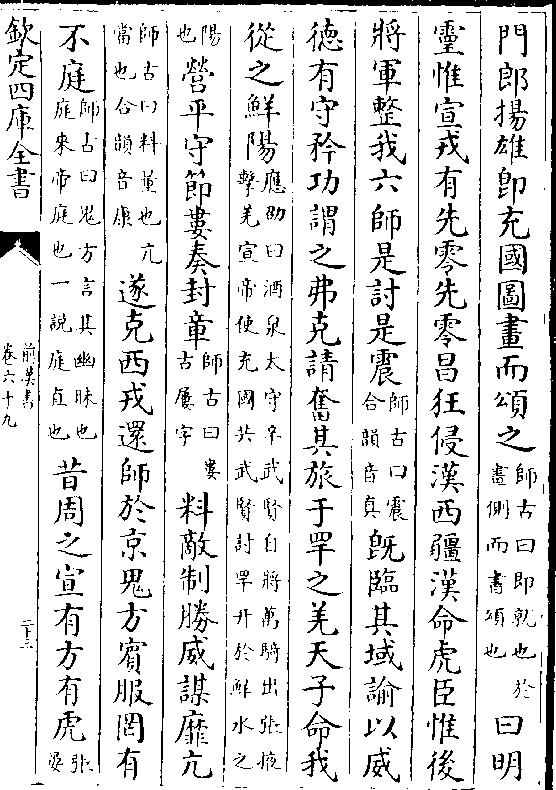 門郎揚雄卽充國圖畫而頌之師古曰卽就也於畫側而書頌也曰明
靈惟宣戎有先零先零昌狂侵漢西疆漢命虎臣惟後
將軍整我六師是討是震師古曰震合韻音真旣臨其域諭以威
徳有守矜功謂之弗克請奮其旅于䍐之羌天子命我
從之鮮陽應劭曰酒泉太守辛武賢自將萬騎出張掖擊羌宣帝使充國共武賢討罕幵於鮮水之
陽也營平守節婁奏封章師古曰婁古屢字料敵制勝威謀靡亢
師古曰料量也亢當也合韻音康遂克西戎還師於京鬼方賓服罔有
不庭師古曰鬼方言其幽昧也庭來帝庭也一說庭直也昔周之宣有方有虎張晏
欽定四庫全書
前漢書
卷六十九
二十三